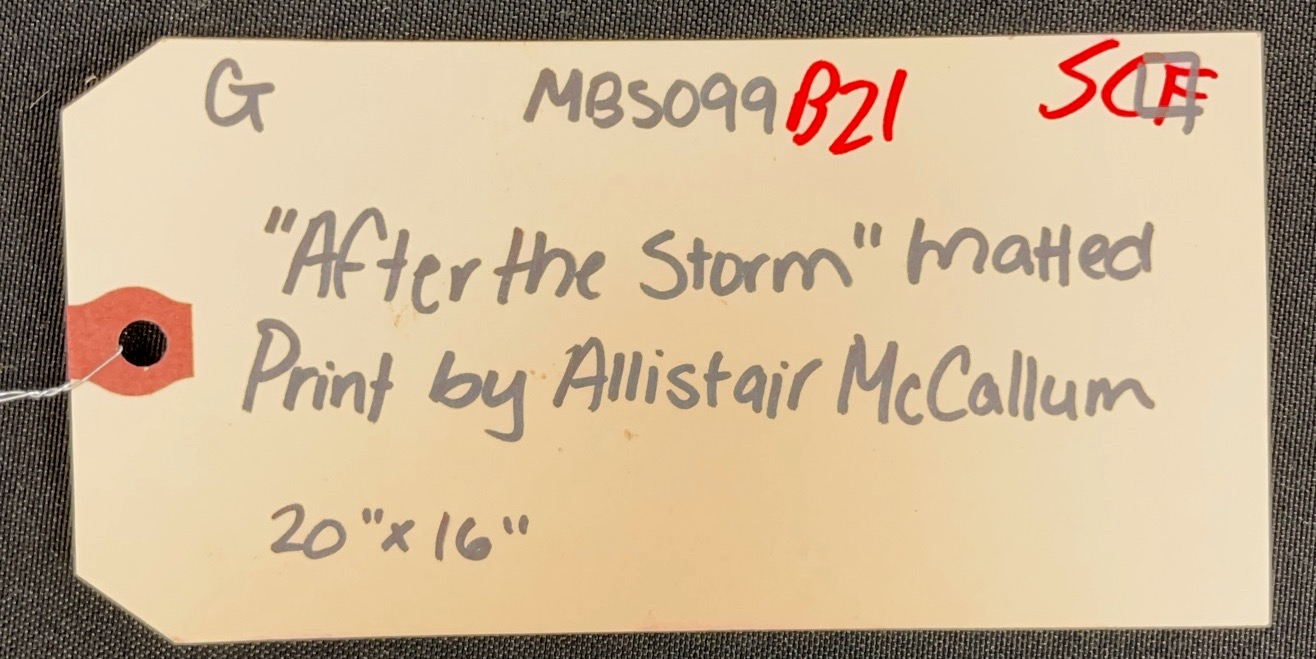 G MBS099 B21 SCF
"After the Storm" matted
Print by Allistair McCallum
20" x 16"